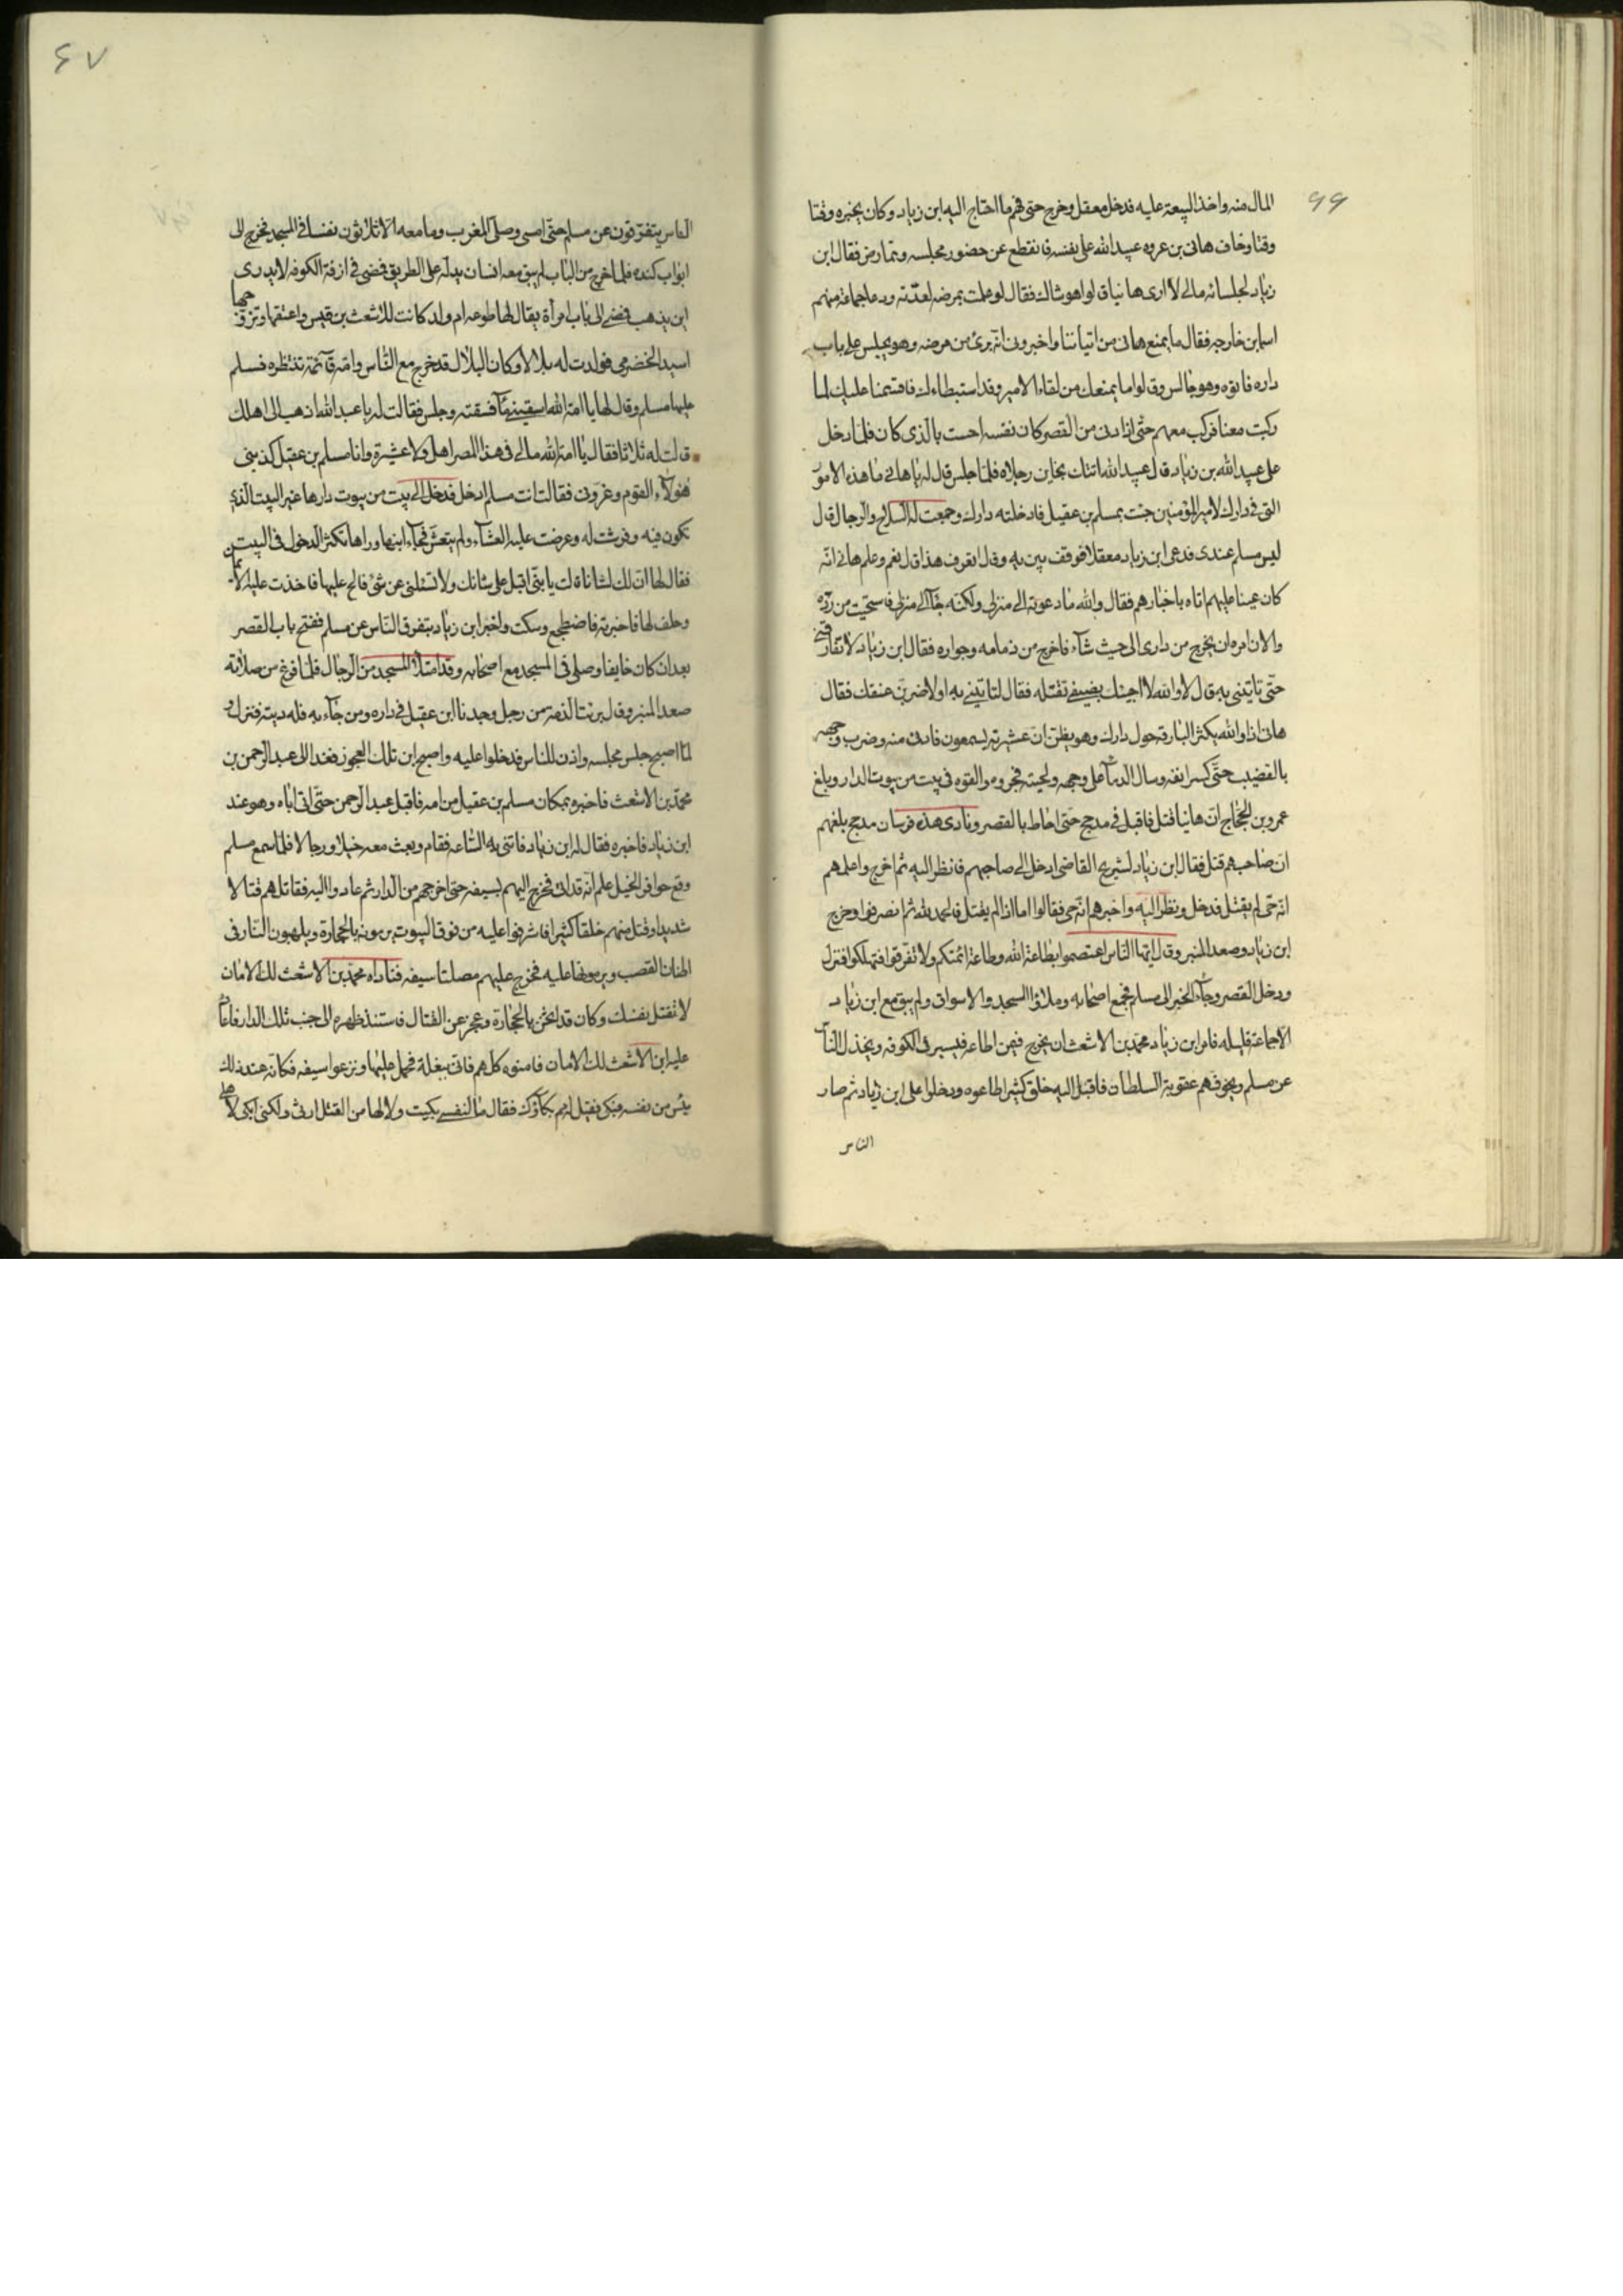 ٦٦
المال منه واخذ البيعة عليه فدخل معقل وخرج حتى فهم ما احتاج اليه ابن زياد وكان يخبره وقتا
وقتا وخاف هانى بن عروه عبيد الله على نفسه فانقطع عن حضور مجلسه وتمارض فقال ابن
زياد لجلسائه مالى لا ارى هانيا قالوا هو شاك فقال لو علمت بمرضه لعدته ودعا جماعة منهم
اسما بن خارجه فقال ما يمنع هانى من اتياننا واخبرونى انه برئ من مرضه وهو يجلس على باب
داره فاتوه وهو جالس وقالوا ما يمنعك من لقاء الامير وقد استبطاءك فاقسمنا عليك لما
ركبت معنا فركب معهم حتى اذا دنى من القصر كان نفسه احست بالذى كان فلما دخل
على عبيد الله بن زياد قال عبيد الله اتتك بخاين رجلاه فلما جلس قال له يا هانى ما هذه الامور
التى فى دارك لامير المؤمنين جئت بمسلم بن عقيل فادخلته دارك وجمعت له السلاح والرجال قال
ليس مسلم عندى فدعى ابن زياد معقلا فوقف بين يديه وقال اتعرف هذا قال نعم وعلم هانى انه
كان عينا عليهم اتاه باخبارهم فقال والله ما دعوته الى منزلى ولكنه جآء الى منزلى فاستحيت من رده
والان امره ان يخرج من دارى الى حيث شآء فاخرج من ذمامه وجواره فقال ابن زياد لا تفارقنى
حتى تاتينى به قال لا والله لا اجيئك بضيفى تقتله فقال لتاتينى به او لاضربن عنقك فقال
هانى اذا والله يكثر البارقة حول دارك وهو يظن ان عشيرته يسمعون فادنى منه وضرب وجهه
بالقضيب حتى كسر انفه وسال الدماء على وجهه ولحيته فجروه والقوه فى بيت من بيوت الدار وبلغ
عمرو بن الحجاج ان هانيا قتل فاقبل فى مذحج حتى احاط بالقصر ونادى هذه فرسان مذحج بلغهم
ان صاحبهم قتل فقال ابن زياد لشريح القاضى ادخل الى صاحبهم فانظر اليه ثم اخرج واعلمهم
انه حى لم يقتل فدخل ونظر اليه واخبرهم انه حى فقالوا اما اذا لم يقتل فالحمد لله ثم انصرفوا وخرج
ابن زياد وصعد المنبر وقال ايها الناس اعتصموا بطاعة الله وطاعة ائمتكم ولا تفرقوا فتهلكوا فنزل
ودخل القصر وجآء الخبر الى مسلم فجمع اصحابه وملاؤا المسجد والاسواق ولم يبق مع ابن زياد
الا جماعة قليله فامر ابن زياد محمد بن الاشعث ان يخرج فيمن اطاعه فيسير فى الكوفه ويخذل الناس
عن مسلم ويخوفهم عقوبة السلطان فاقبل اليه خلق كثير اطاعوه ودخلوا على ابن زياد ثم صار
الناس
٦٧
الناس يتفرقون عن مسلم حتى امسى وصلى المغرب وما معه الا ثلاثون نفسا فى المسجد فخرج الى
ابواب كنده فلما خرج من الباب لم يبق معه انسان يدله على الطريق فمضى فى ازقة الكوفه لا يدرى
اين يذهب فمضى الى باب امرأة يقال لها طوعه ام ولد كانت للاشعث بن قيس واعتقها وتزوجها
اسيد الحضرمى فولدت له بلالا وكان البلال قد خرج مع الناس وامه قآئمة تنتظره فسلم
عليها مسلم وقال لها يا امة الله اسقينى مآء فسقته وجلس فقالت له يا عبد الله اذهب الى اهلك
قالت له ثلاثا فقال يا امة الله مالى فى هذا المصر اهل ولا عشيرة وانا مسلم بن عقيل كذبنى
هؤلآء القوم وغرونى فقالت انت مسلم ادخل فدخل الى بيت من بيوت دارها غير البيت الذى
تكون فيه وفرشت له وعرضت عليه العشآء ولم يتعش فجآء ابنها وراها تكثر الدخول فى البيت
فقال لها ان لك لشانا قالت يا بنى اقبل على شانك ولا تسئلنى عن شئ فالح عليها فاخذت عليه الايمان
وحلف لها فاخبرته فاضطجع وسكت واخبر ابن زياد بتفرق الناس عن مسلم ففتح باب القصر
بعد ان كان خايفا وصلى فى المسجد مع اصحابه وقد امتلأ المسجد من الرجال فلما فرغ من صلاته
صعد المنبر وقال برئت الذمة من رجل وجدنا ابن عقيل فى داره ومن جآء به فله ديته فنزل و
لما اصبح جلس مجلسه واذن للناس فدخلوا عليه واصبح ابن تلك العجوز فغدا الى عبد الرحمن بن
محمد بن الاشعث فاخبره بمكان مسلم بن عقيل من امه فاقبل عبد الرحمن حتى اتى اباه وهو عند
ابن زياد فاخبره فقال له ابن زياد فاتنى به الساعه فقام وبعث معه خيلا ورجالا فلما سمع مسلم
وقع حوافر الخيل علم انه قد اتى فخرج اليهم بسيفه حتى اخرجهم من الدار ثم عادوا اليه فقاتلهم قتالا
شديدا وقتل منهم خلقا كثيرا فاشرفوا عليه من فوق البيوت يرمونه بالحجارة ويلهبون النار فى
اطنان القصب ويرمونها عليه فخرج عليهم مصلتا سيفه فناداه محمد بن الاشعث لك الامان
لا تقتل نفسك وكان قد اثخن بالحجارة وعجز عن القتال فاستند ظهره الى جنب تلك الدار فاعاد
عليه ابن الاشعث لك الامان فامنوه كلهم فاتى ببغلة فحمل عليها ونزعوا سيفه فكانه عند ذلك
يئس من نفسه فبكى فقيل له مم بكآؤك فقال ما لنفسى بكيت ولا لها من القتل ارثى ولكنى ابكى لاهلى